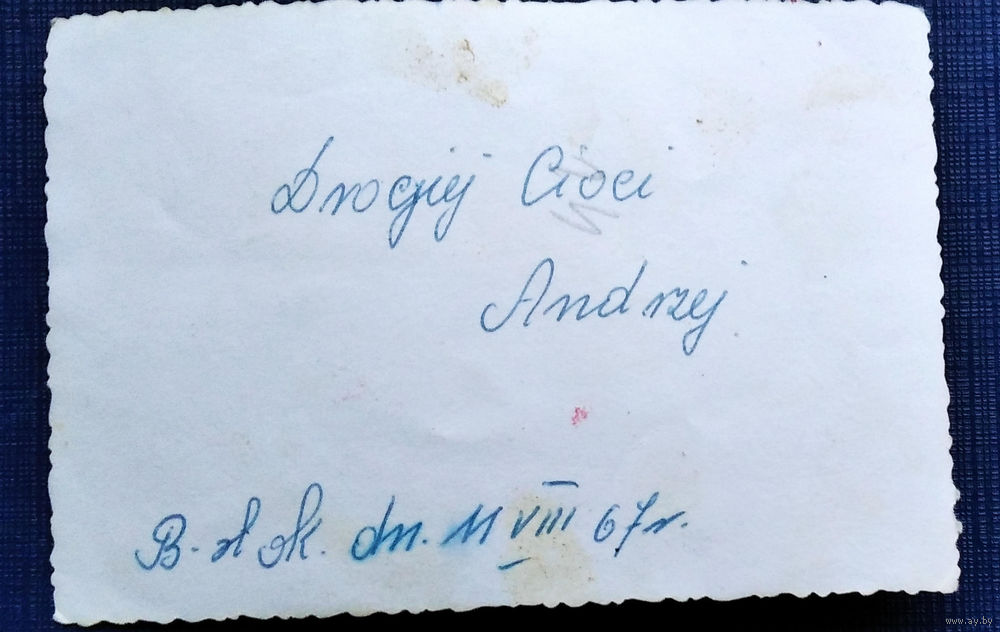 Drogiej Cioci
Andrzej.
B-stok. dn. 11 VIII 67r.
www.ay.by